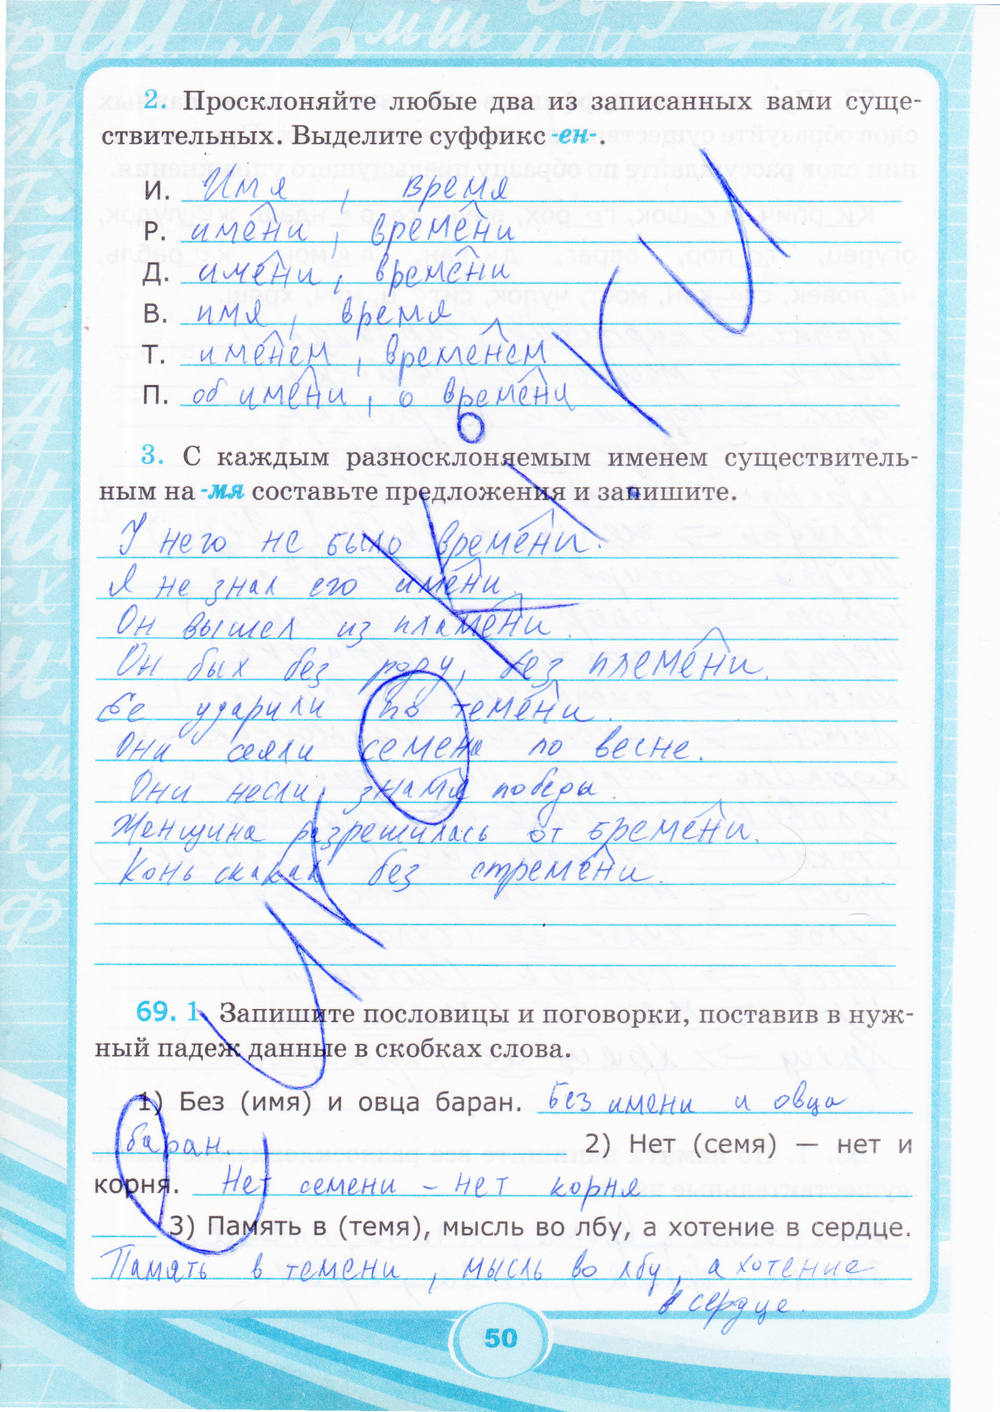 2. Просклоняйте любые два из записанных вами суще-
ствительных. Выделите суффикс -ен-.
И. Имя , время
Р. имени , времени
Д. имени , времени
В. имя , время
Т. именем , временем
П. об имени , о времени
3. С каждым разносклоняемым именем существитель-
ным на -мя составьте предложения и запишите.
У него не было времени.
Я не знал его имени
Он вышел из пламени.
Он был без роду, без племени.
Её ударили по темени.
Они сеяли семена по весне.
Они несли знамя победы.
Женщина разрешилась от бремени.
Конь скакал без стремени.
69. 1. Запишите пословицы и поговорки, поставив в нуж-
ный падеж данные в скобках слова.
1) Без (имя) и овца баран. Без имени и овца
баран 2) Нет (семя) — нет и
корня. Нет семени – нет корня
3) Память в (темя), мысль во лбу, а хотение в сердце.
Память в темени , мысль во лбу, а хотение
в сердце.
50